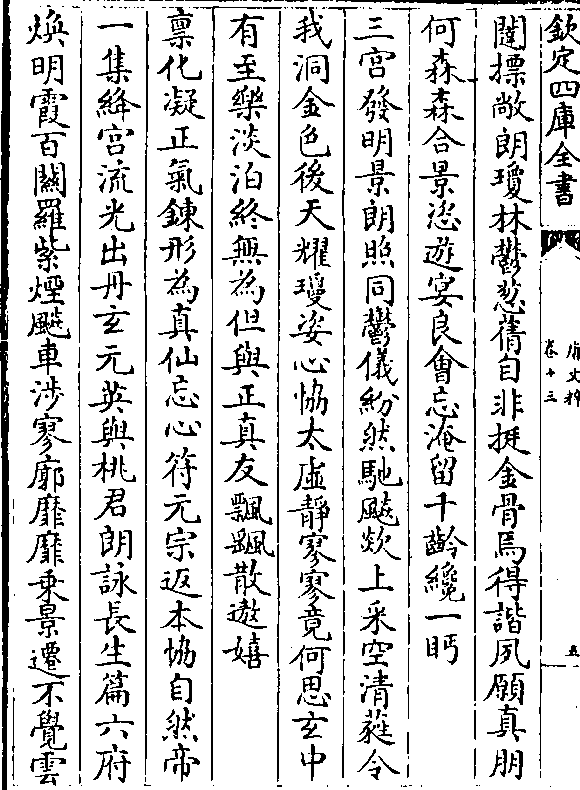 欽定四庫全書
唐文粹
卷十三
五
闥摽敞朗瓊林鬱葱蒨自非挺金骨焉得諧夙願真朋
何森森合景恣遊宴良會忘淹留千齡纔一眄
三宮發明景朗照同鬱儀紛然馳飈欻上采空清蕤令
我洞金色後天耀瓊姿心協太虛靜寥寥竟何思玄中
有至樂淡泊終無為但與正真友飄飖散遨嬉
禀化凝正氣鍊形為真仙忘心符元宗返本協自然帝
一集絳宮流光出丹玄元英與桃君朗詠長生篇六府
煥明霞百關羅紫煙飈車涉寥廓靡靡乗景遷不覺雲